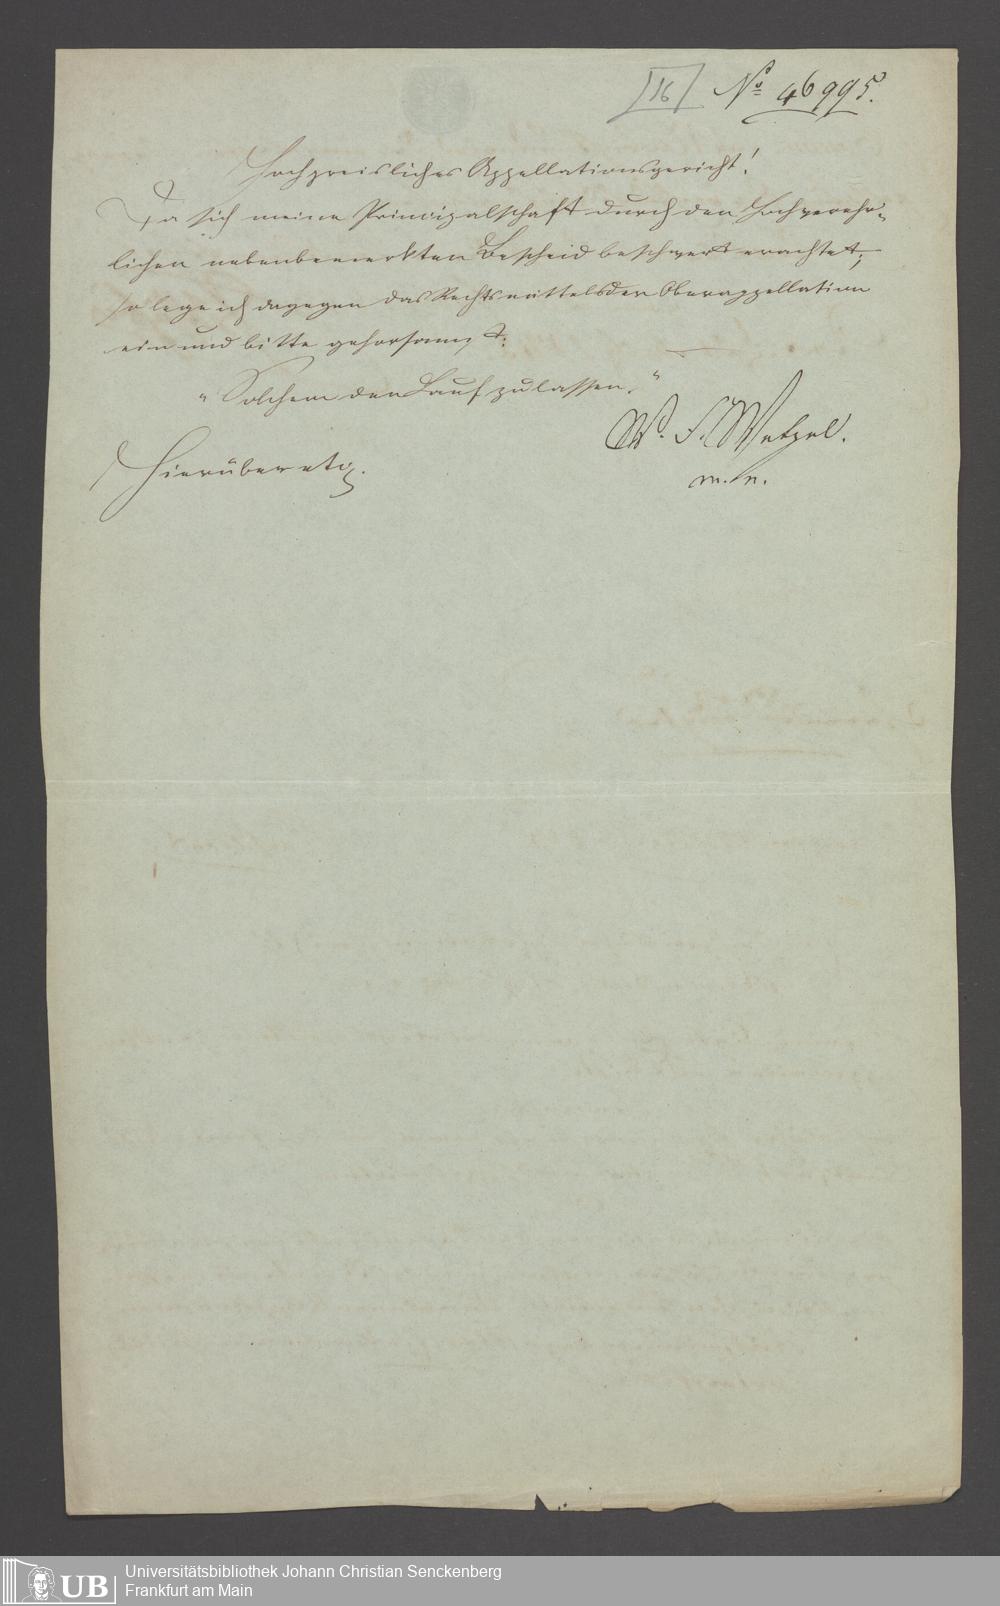 [16] No 46995.
Hochpreisliches Appellationsgericht!
Da sich meine Principalschaft durch den Hochverehr-
lichen nebenbemerkten Bescheid beschwert erachtet,
so lege ich dagegen das Rechtsmittels der Oberappellation
ein und bitte gehorsamst:
"Solchem den Lauf zu lassen."
W. F. Wetzel.
m. n.
Hierüber etc.
UB Universitätsbibliothek Johann Christian Senckenberg
Frankfurt am Main